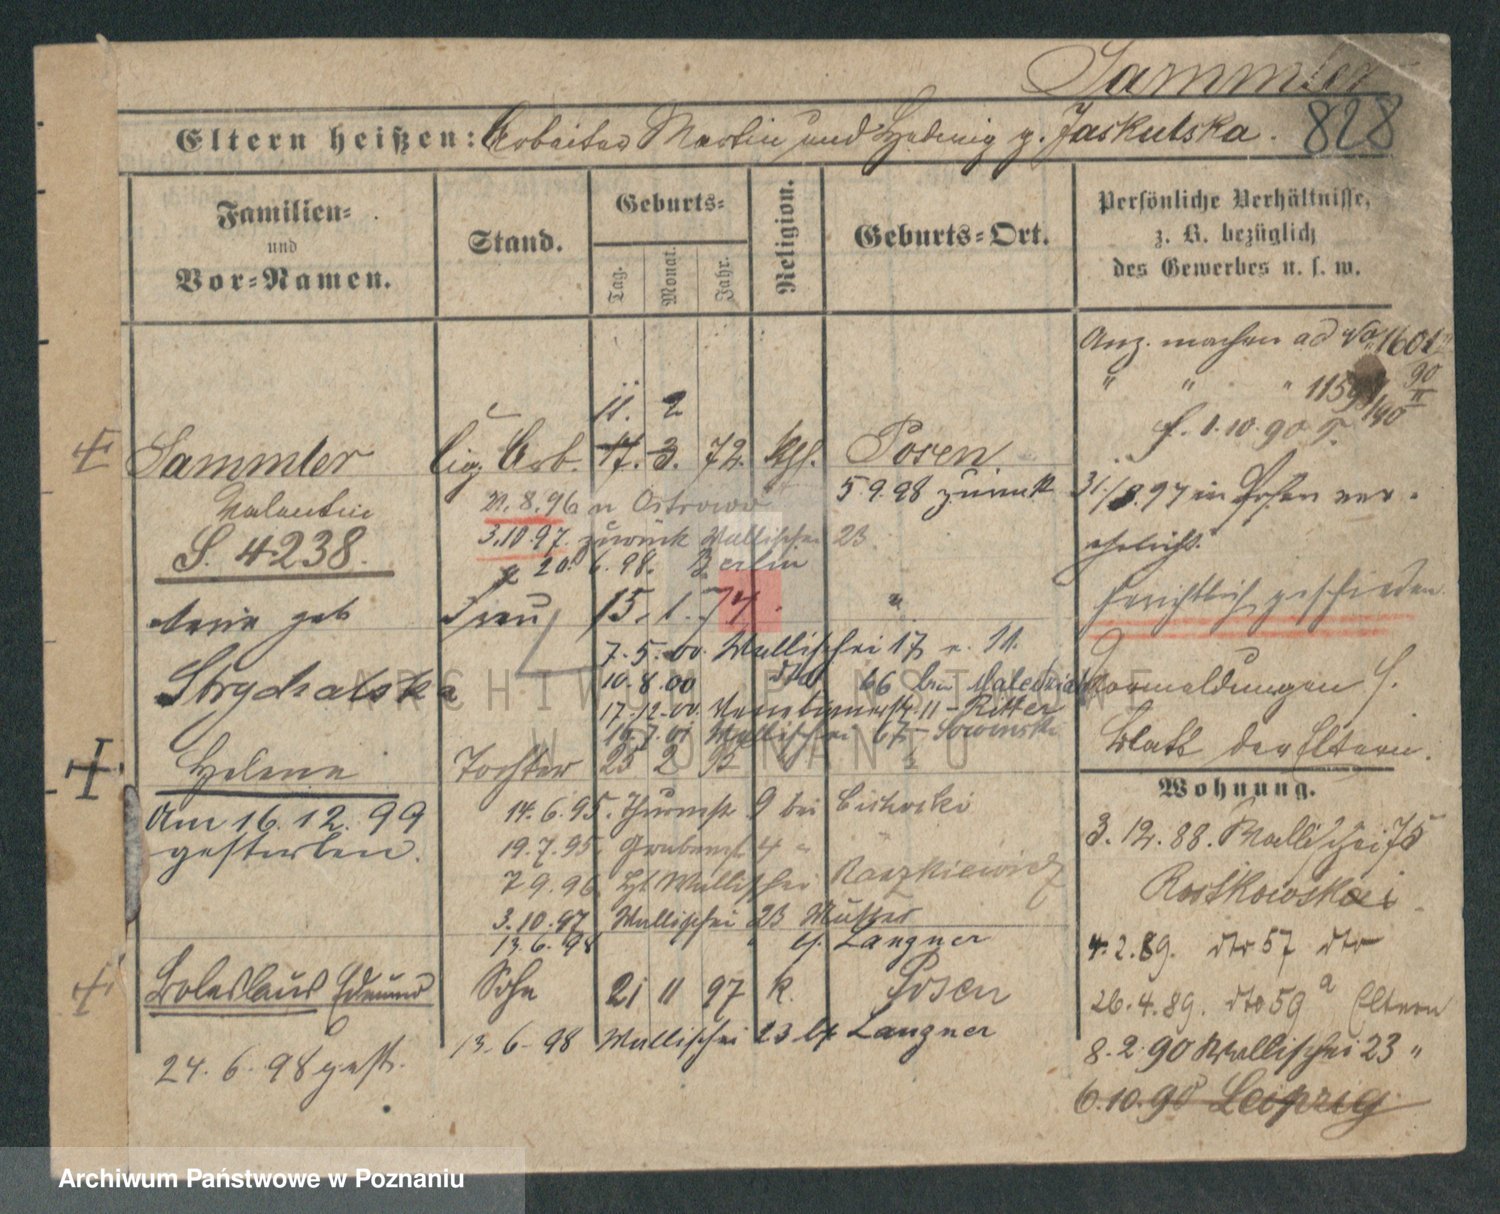 Sammler
828
Eltern heißen: Arbeiter Martin und Hedwig g. Jaskulska.
Familien-
und
Vor-Namen.
Stand.
Geburts-
Tag.
Monat.
Jahr.
Religion.
Geburts-Ort.
Persönliche Verhältnisse,
z. B. bezüglich
des Gewerbes u. s. w.
Anz. machen ad No 1601
" " " 1159 90
f. 1.10.90
11. 2
Sammler Cig. Arb. 17. 3. 72. kth. Posen
Valentin
S. 4238.
21.8.96 n Ostrowo
5.9.98 zurück
3.10.97 zurück Wallischei 23
20.6.98. Berlin
31./8.97 in Posen ver-
ehelicht.
gerichtlich geschieden.
geb Frau 15. 1. 74. "
Strychalska
7.5.00. Wallischei 17
10.8.00 dto 66 bei
17.12.00. 11 - Ritter
Wallischei 67
Vormeldungen s.
Blatt der Eltern.
Helene Tochter 25 2
Am 16.12.99
gestorben.
14.6.95. Thurmstr 9 bei Cichocki
19.7.95. Grabenstr 4 "
7.9.96 Wallischei
3.10.97 Wallischei 23 Mutter
13.6.98 " b/ Langner
Boleslaus Edmund Sohn 21 11 97 k. Posen
24.6.98 gest.
13.6.98 Wallischei 23 b/ Langner
Wohnung.
3.12.88. Wallischei 75
4.2.89. dto 57 dto
26.4.89. dto 59a Eltern
8.2.90 Wallischei 23 "
6.10.90 Leipzig
ARCHIWUM PAŃSTWOWE
W POZNANIU
Archiwum Państwowe w Poznaniu